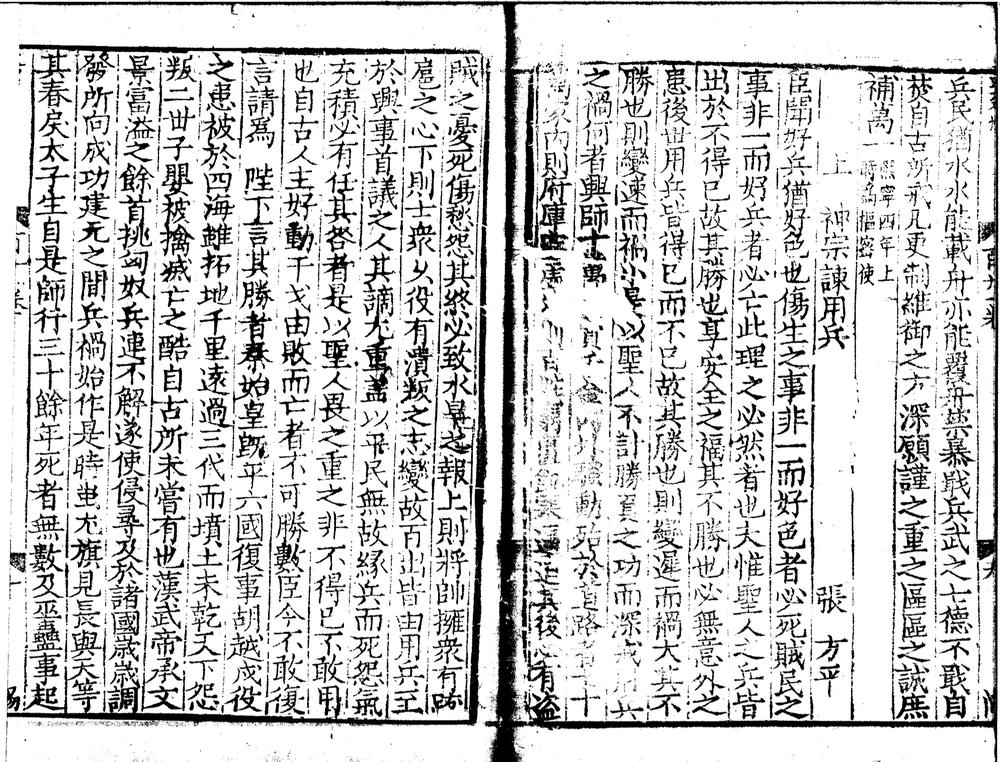 兵民猶水水能載舟亦能覆舟禁暴戢兵武之七德不戢自
焚自古所戒凡更制維御之方深願謹之重之區區之誠庶
補萬一熙寧四年上時爲樞密使
上神宗諫用兵 張方平
臣聞好兵猶好色也傷生之事非一而好色者必死賊民之
事非一而好兵者必亡此理之必然者也夫惟聖人之兵皆
出於不得已故其勝也享安全之福其不勝也必無意外之
患後世用兵皆得已而不已故其勝也則變遲而禍大其不
勝也則變速而禍小是以聖人不計勝負之功而深戒用兵
之禍何者興師十萬日費千金內外騷動殆於道路者七十
萬家內則府庫
賊之憂死傷愁怨其終必致水旱之報上則將帥擁衆有跋
扈之心下則士衆久役有潰叛之志變故百出皆由用兵至
於興事首議之人其謫尤重蓋以平民無故緣兵而死怨氣
充積必有任其咎者是以聖人畏之重之非不得已不敢用
也自古人主好動干戈由敗而亡者不可勝數臣今不敢復
言請爲 陛下言其勝者秦始皇旣平六國復事胡越戍役
之患被於四海雖拓地千里遠過三代而墳土未乾天下怨
叛二世子嬰被擒滅亡之酷自古所未嘗有也漢武帝承文
景富溢之餘首挑匈奴兵連不解遂使侵尋及於諸國歲歲調
發所向成功建元之間兵禍始作是時蚩尤旗見長與天等
其春戾太子生自是師行三十餘年死者無數及巫蠱事起